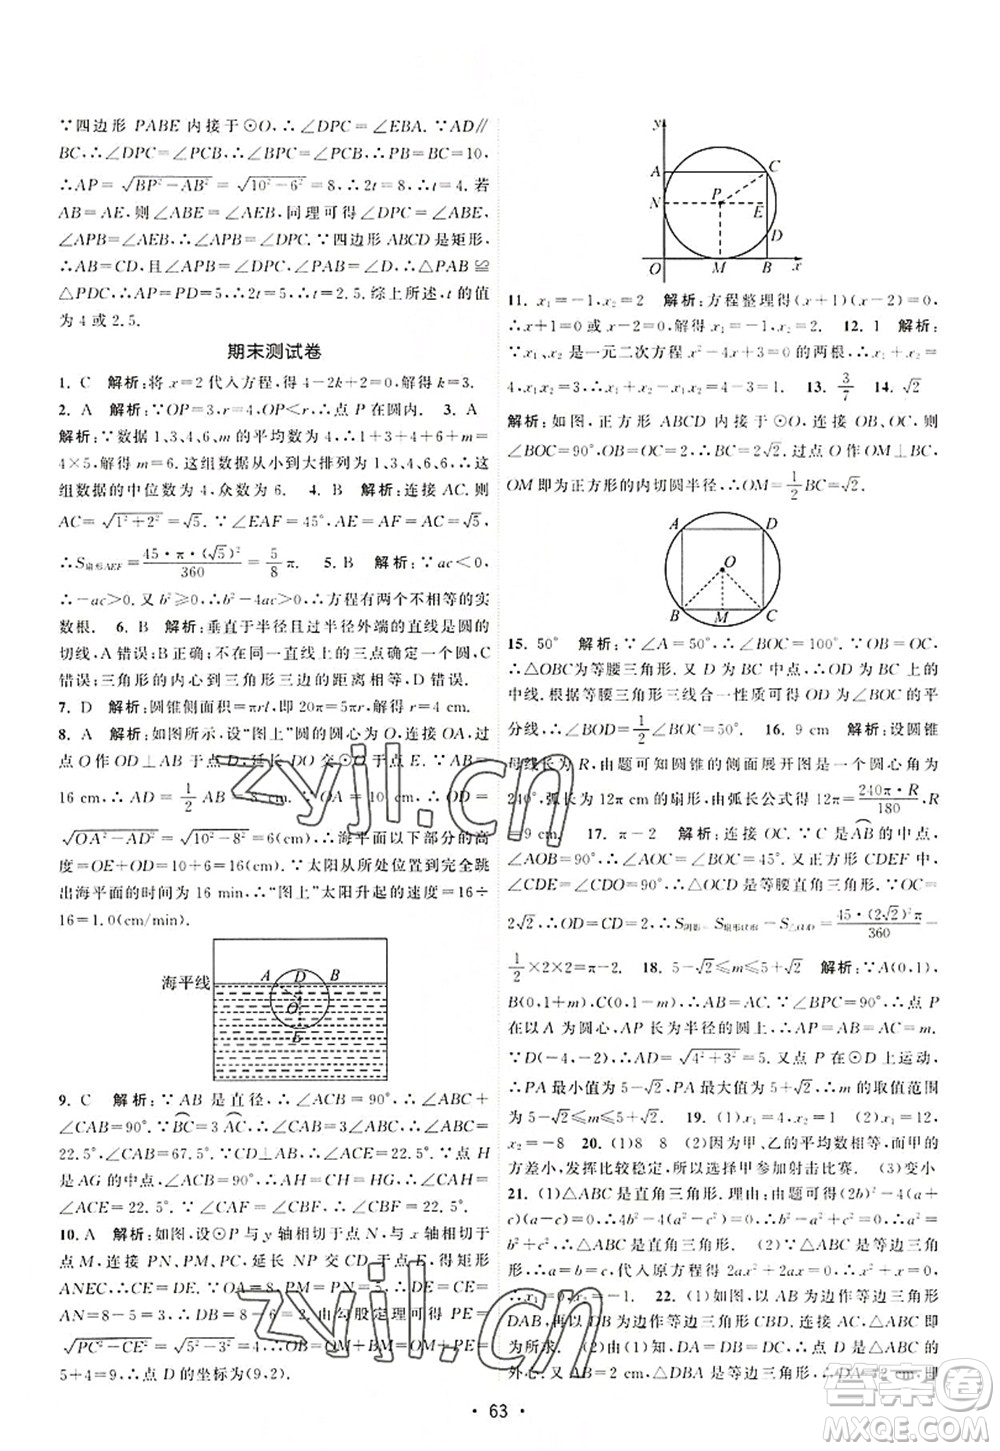 ∵四边形 PABE 内接于⊙O,∴∠DPC=∠EBA.∵AD∥
BC,∴∠DPC=∠PCB,∴∠PBC=∠PCB,∴PB=BC=10,
∴AP=√(BP²-AB²)=√(10²-6²)=8,∴2t=8,∴t=4.若
AB=AE,则∠ABE=∠AEB,同理可得∠DPC=∠ABE,
∠APB=∠AEB,∴∠APB=∠DPC.∵四边形 ABCD 是矩形,
∴AB=CD,且∠BAP=∠CDP=90°,∴△APB≌
△DPC,∴AP=PD=5,∴2t=5,∴t=2.5.综上所述,t的值
为4或2.5.
期末测试卷
1. C 解析:将 x=2代入方程,得 4-2k+2=0,解得 k=3.
2. A 解析:∵OP=3,r=4,OP<r,∴点 P 在圆内. 3. A
解析:∵数据 1、3、4、6、m 的平均数为 4,∴1+3+4+6+m=
4×5,解得 m=6.这组数据从小到大排列为 1,3,4,6,6,∴这
组数据的中位数为 4,众数为 6. 4. B 解析:连接 AC.则
AC=√(1²+2²)=√5.∵∠EAF=45°,AE=AF=AC=√5,
∴S扇形AEF=45·π·(√5)²/360=5/8 π. 5. B 解析:∵ac<0,
∴-ac>0.又∵b²≥0,∴b²-4ac>0,∴方程有两个不相等的实
数根. 6. B 解析:垂直于半径且过半径外端的直线是圆的
切线,A 错误;B 正确;不在同一直线上的三点确定一个圆,C
错误;三角形的内心到三角形三边的距离相等,D 错误.
7. D 解析:圆锥侧面积=πrl,即 20π=5πr,解得 r=4.
8. A 解析:如图,设“图上”圆的圆心为 O,连接 OA,过点
O 作 OD⊥AB 于点 D,延长 DO 交⊙O 于点 E.∵AB=
16 cm,∴AD=1/2 AB=8 cm.∵OA=10 cm,∴OD=
√(OA²-AD²)=√(10²-8²)=6(cm),∴海平面以下部分的高
度=OE+OD=10+6=16(cm).∵太阳从所处位置到完全跳
出海平面的时间为 16 min,∴“图上”太阳升起的速度=16÷
16=1.0(cm/min).
海平线 A D B O E
9. C 解析:∵AB 是直径,∴∠ACB=90°,∴∠CAB+
∠CBA=90°.∵BC=3AC,∴∠CAB=3∠CBA,∴∠CBA=
22.5°,∠CAB=67.5°.∵CD⊥AB,∴∠ACE+∠CAB=
90°,∴∠ACE=22.5°,∴∠CAH=∠ACE=22.5°.∵点 H
是 AG 的中点,∴AH=CH=HG,∴∠CAH=∠ACE=
22.5°.
10. A 解析:如图,设⊙P 与 y 轴相切于点 N,与 x 轴相切于
点 M,连接 PN,PM,PC,延长 NP 交 CD 于点 E,得矩形
ANEC,∴CE=DE.∵OA=8,PN=PM=5,∴CE=DE=
AN=8-5=3,∴DB=8-6=2,由勾股定理可得 PE=
√(PC²-CE²)=√(5²-3²)=4,∴OB=OM+BM=OM+PE=
5+4=9,∴点 D 的坐标为(9,2).
y A C N P E D O M B x
11. x₁=-1,x₂=2 解析:方程整理得(x+1)(x-2)=0,
∴x+1=0 或 x-2=0,∴x₁=-1,x₂=2. 12. 1 解析:
∵x₁,x₂ 是一元二次方程 x²-4x+3=0 的两根,∴x₁+x₂=
4,x₁x₂=3,∴x₁+x₂-x₁x₂=4-3=1. 13. 3/7 14. √2
解析:如图,正方形 ABCD 内接于⊙O,连接 OB、OC,则
∠BOC=90°,OB=OC=2,∴BC=2√2.过点 O 作 OM⊥BC,
OM 即为正方形的内切圆半径,∴OM=1/2 BC=√2.
A D O B M C
15. 50° 解析:∵∠A=50°,∴∠BOC=100°.∵OB=OC,
∴△OBC为等腰三角形.又 D 为 BC 中点,∴OD 为 BC 上的
中线.根据等腰三角形三线合一性质可得 OD 为∠BOC 的平
分线,∴∠BOD=1/2∠BOC=50°. 16. 9 cm 解析:设圆锥
母线长为 R,由题可知圆锥的侧面展开图是一个圆心角为
240°,弧长为 12π cm 的扇形,由弧长公式得 12π=240π·R/180,
R=9 cm. 17. π-2 解析:连接 OC.∵C 是AB的中点,
∠AOB=90°,∴∠COB=45°.又∵四边形 CDEF 为正方形,
∴∠CDE=∠CDO=90°,∴△OCD是等腰直角三角形.∵OC=
2√2,∴OD=CD=2,∴S阴影=S扇形COB-S△COD=45·(2√2)²π/360-
1/2×2×2=π-2. 18. 5-√2≤m≤5+√2 解析:∵A(0,1),
B(0,1+m),C(0,1-m),∴AB=AC=m.∵∠BPC=90°,∴点 P
在以 A 为圆心,AP 长为半径的圆上,∴AP=AB=AC=m.
∵D(4,4),∴DA=√(4²+3²)=5.又∵点 P 在⊙D 上运动,
∴PA 最小值为 5-√2,PA 最大值为 5+√2,∴m 的取值范围
为 5-√2≤m≤5+√2. 19. (1)x₁=4,x₂=2 (2)x₁=12,
x₂=-8 20. (1)8 8 (2)因为甲、乙的平均数相等,而甲的
方差小,发挥比较稳定,所以选择甲参加射击比赛. (3)变小
21. (1)△ABC是直角三角形.理由:由题可得(2b)²-4(a+
c)(a-c)=0,∴4b²-4(a²-c²)=0,∴b²+c²=a²,∴△ABC是
直角三角形. (2)∵△ABC是等边三角形,
∴a=b=c,代入原方程得 2ax²+2ax=0,∴x²+x=0,∴
x₁=0,x₂=-1. 22. (1)如图,以 AB 为边作等边三角形
DAB,再以 BD 为边作等边三角形 CBD.∵△ABC 与△CBD
即为所求. (2)由(1)知,△ABD 是等边三角形,点 O 是△ABD 的
外心.又∵AB=2 cm,
63
zyjl.cn
zyjl.cn
答案圈
MXQE.COM